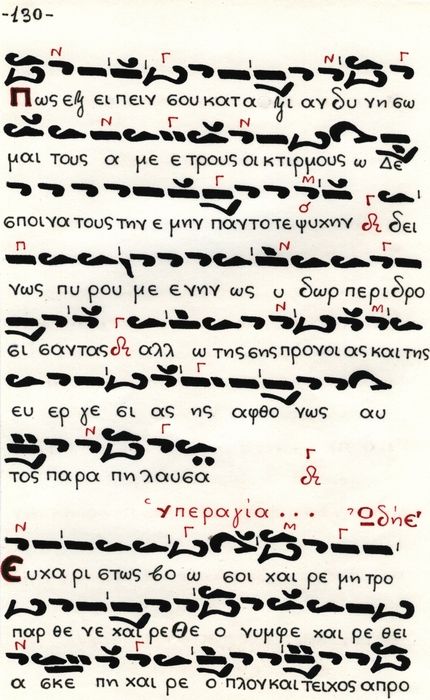 -130-
Πως εξ ει πειν σου κατα ξι αν δυ νη σω
μαι τους α με ε τρους οι κτιρμους ω Δε
σποινα τους την ε μην παντοτε ψυχην δει
νως πυ ρου με ε νην ως υ δωρ περιδρο
σι σαντας αλλ ω της σης προνοι ας και της
ευ ερ γε σι ας ης αφθο νως αυ
τος παρα πη λαυσα
Υπεραγία... Ὠδή ε'
Ευχα ρι στως βο ω σοι χαι ρε μη τρο
παρ θε νε χαι ρε Θε ο νυμφε χαι ρε θει
α σκε πη χαι ρε ο πλον και τειχος απρο